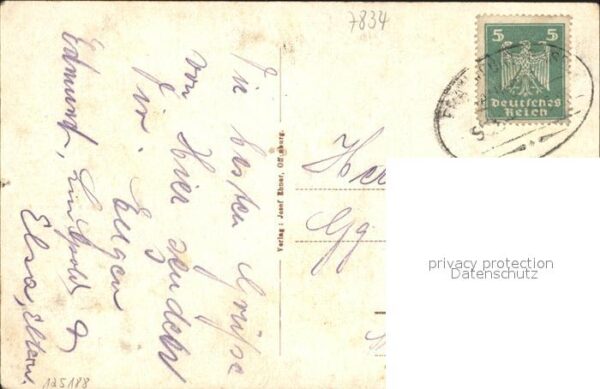 7834
5 5
Deutsches
Reich
Die besten Grüße
von Hier sendet
Dir
Eugen
Edmund, Luitgold &
Elsa, Eltern.
Verlag: Josef Ebner, Offenburg.
Her
Gg
privacy protection
Datenschutz
125188